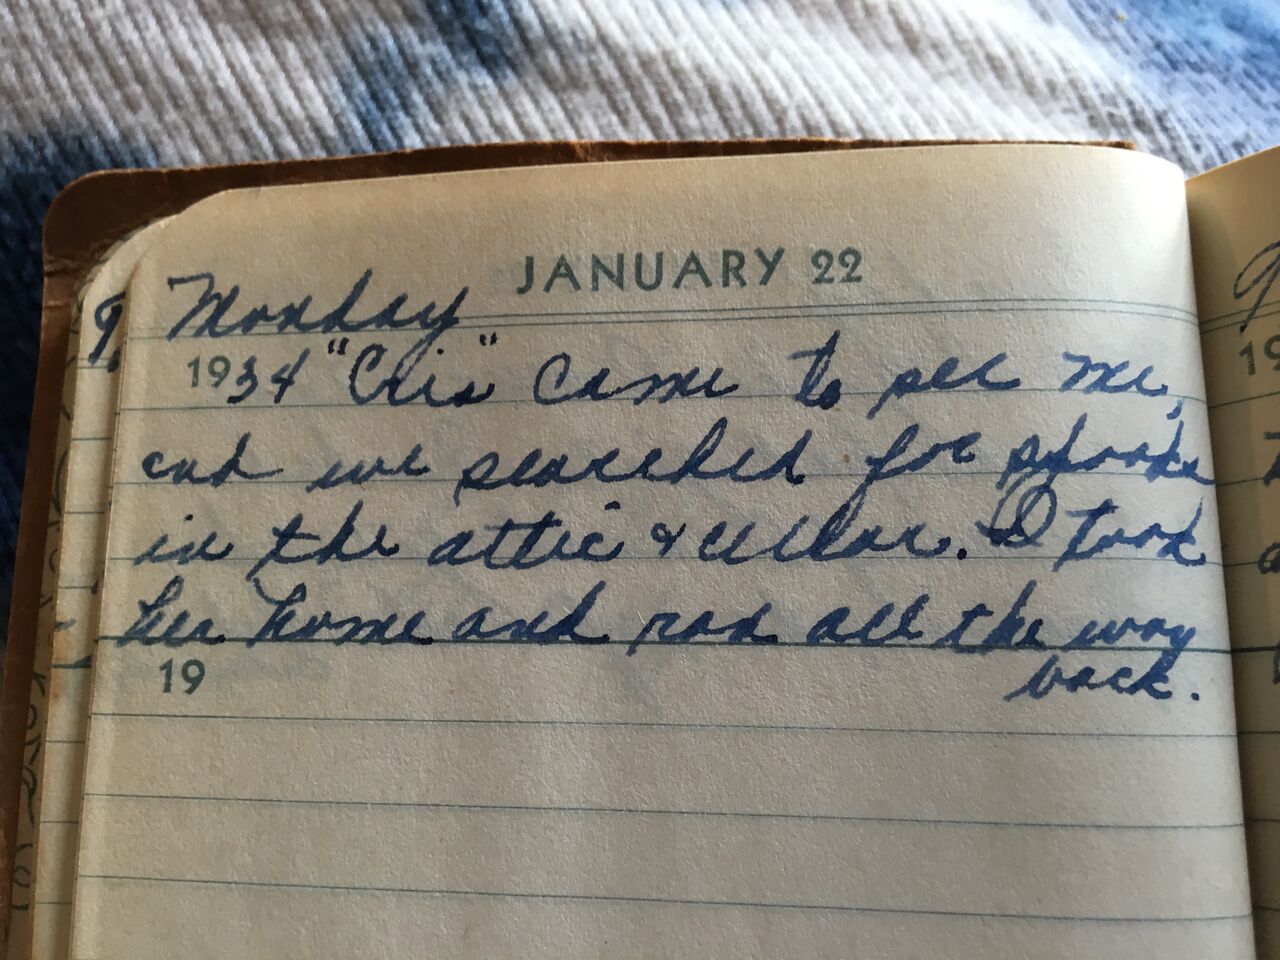 JANUARY 22
Monday
1934 "Cris" came to see me,
and we searched for spooks
in the attic & cellar. I took
her home and ran all the way
back.
19
19